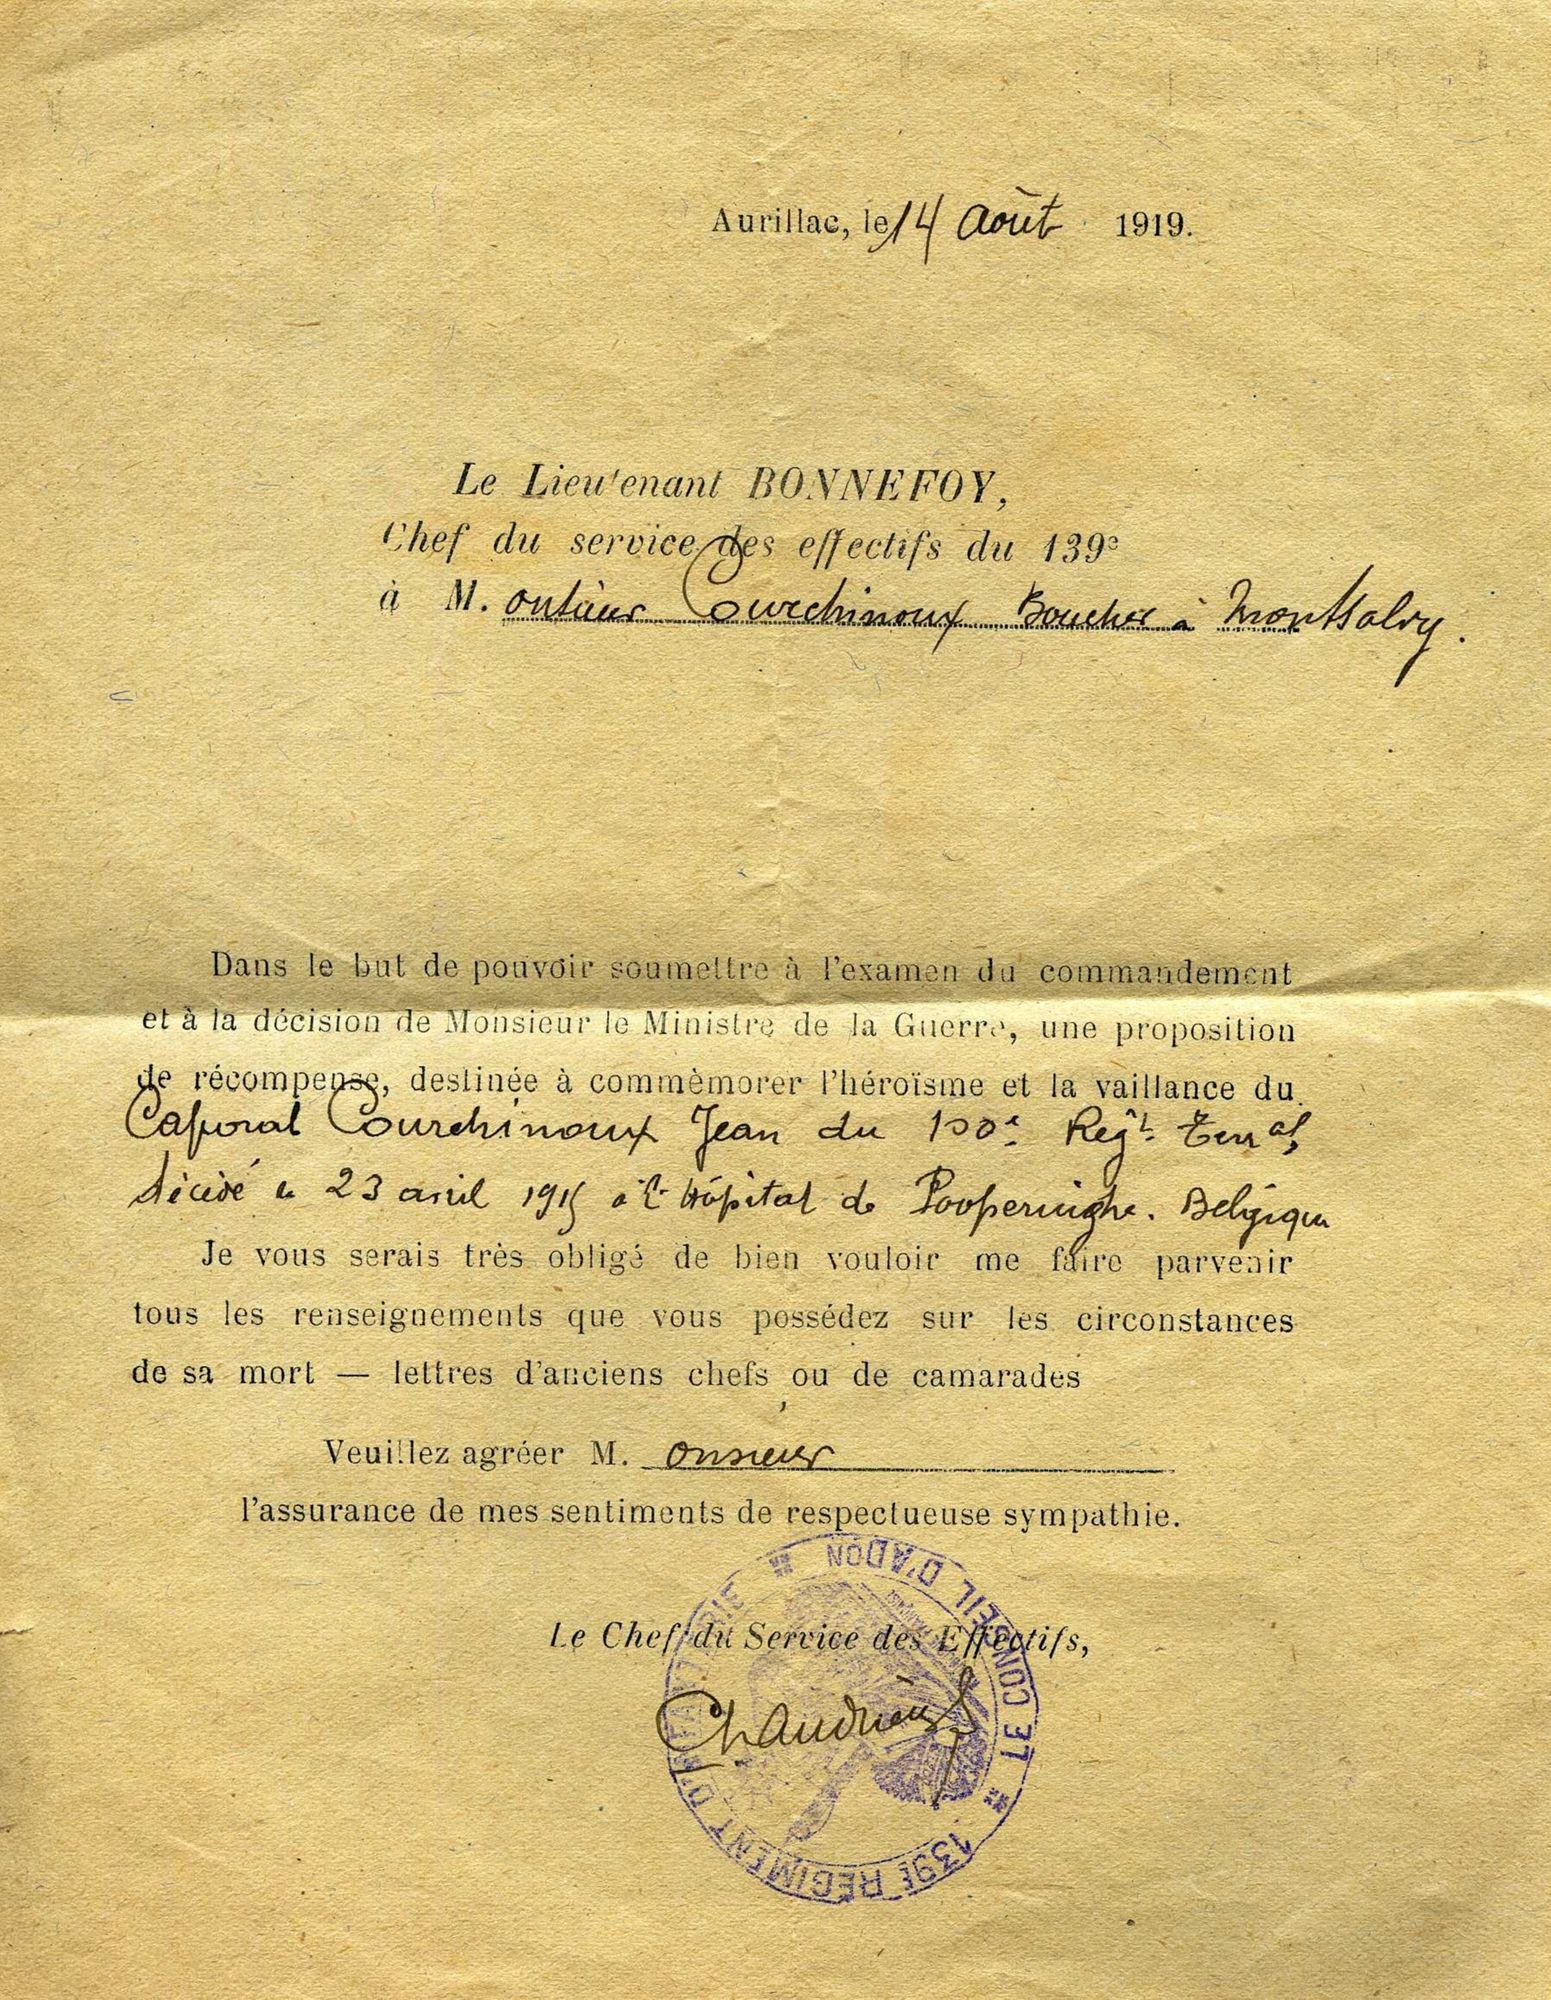 Aurillac, le 14 Août 1919.
Le Lieutenant BONNEFOY,
Chef du service des effectifs du 139e
à M. onsieur Courchinoux Boucher à Montsalvy.
Dans le but de pouvoir soumettre à l'examen du commandement
et à la décision de Monsieur le Ministre de la Guerre, une proposition
de récompense, destinée à commèmorer l'héroïsme et la vaillance du
Caporal Courchinoux Jean du 100e Regt. Terral,
décédé le 23 avril 1915 à l'Hôpital de Pooperinghe. Belgique
Je vous serais très obligé de bien vouloir me faire parvenir
tous les renseignements que vous possédez sur les circonstances
de sa mort — lettres d'anciens chefs ou de camarades
Veuillez agréer M. onsieur
l'assurance de mes sentiments de respectueuse sympathie.
Le Chef du Service des Effectifs,
139E REGIMENT D'INFANTERIE * CONSEIL D'ADON * LE